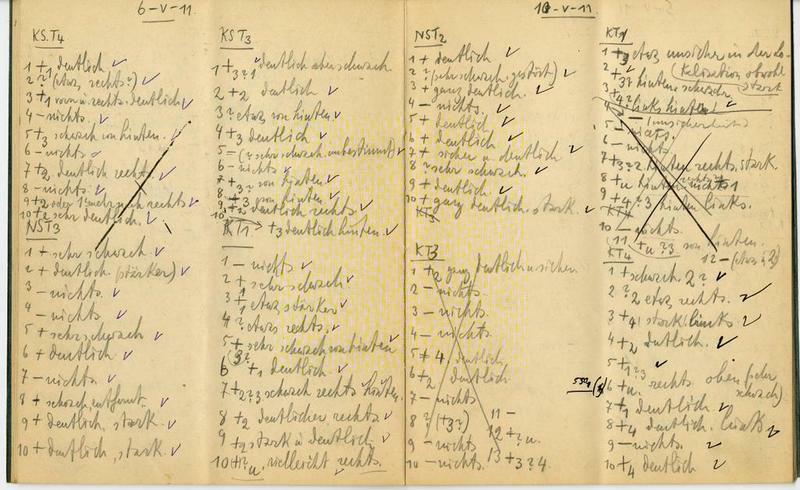 6-V-11.
KS.T4
1 + deutlich ✓
2 ? (etwas rechts?) ✓
3 +1 vorn u. rechts. deutlich ✓
4 – nichts. ✓
5 +3 schwach von hinten. ✓
6 – nichts ✓
7 +2, deutlich rechts ✓
8 – nichts. ✓
9 +2 oder 1? mehr nach rechts ✓
10 +2 sehr deutlich. ✓
NST3
1 + sehr schwach. ✓
2 + deutlich (stärker) ✓
3 – nichts. ✓
4 – nichts ✓
5 + sehr schwach ✓
6 + deutlich ✓
7 – nichts. ✓
8 + schwach, entfernt. ✓
9 + deutlich, stark. ✓
10 + deutlich, stark. ✓
KST3
1 +3?1 deutlich aber schwach
2 +2 deutlich ✓
3 ? etwas von hinten ✓
4 +3 deutlich ✓
5 = (? sehr schwach unbestimmt) ✓
6 – nichts ✓
7 +3 ? von hinten. ✓
8 +3 von hinten. ✓
9 +2 deutlich rechts ✓
10 +3 deutlich hinten. ✓
KT1
1 – nichts ✓
2 + sehr schwach ✓
3 +1 etwas stärker ✓
4 ? etwas rechts. ✓
5 + sehr schwach von hinten
(3?)
6 +1 deutlich ✓
7 +2?3 schwach rechts hinten.
8 +2 deutlicher rechts ✓
9 +2 stark u. deutlich. ✓
10 +?u. vielleicht rechts.
10-V-11.
NST2
1 + deutlich ✓
2 ? (sehr schwach, gestört) ✓
3 + ganz deutlich. ✓
4 – nichts. ✓
5 + deutlich ✓
6 + deutlich ✓
7 + sicher u. deutlich ✓
8 ? sehr schwach. ✓
9 + deutlich. ✓
10 + ganz deutlich. stark. ✓
KT3
KT3
1 +2 ganz deutlich u. sicher
2 – nichts.
3 – nichts.
4 – nichts.
5 +4 deutlich
6 +2 deutlich
7 – nichts
8 ? (+3?)
9 – nichts
10 – nichts.
11 –
12 +?u.
13 +3?4.
KT1
1 +3 etwas unsicher in der Lo-
kalisation obwohl
stark
2 +3? hinten schwach
3 +4? links hinten ✓
(unsicherheit)
5 – nichts.
6 – nichts.
7 +3?2 hinten rechts. stark.
8 +u hinten
9 +4?3 hinten links.
KT4
10 – nichts.
11 +u?3 von hinten.
12 – (etwas ?2)
KT4
1 + schwach 2? ✓
2 ?2 etwas rechts. ✓
3 +4 stark links ✓
4 +2 deutlich. ✓
5 +1?3 ✓
6 +u. rechts oben (sehr
schwach)
7 +1 deutlich. ✓
8 +4 deutlich. links ✓
9 – nichts. ✓
10 +4 deutlich ✓